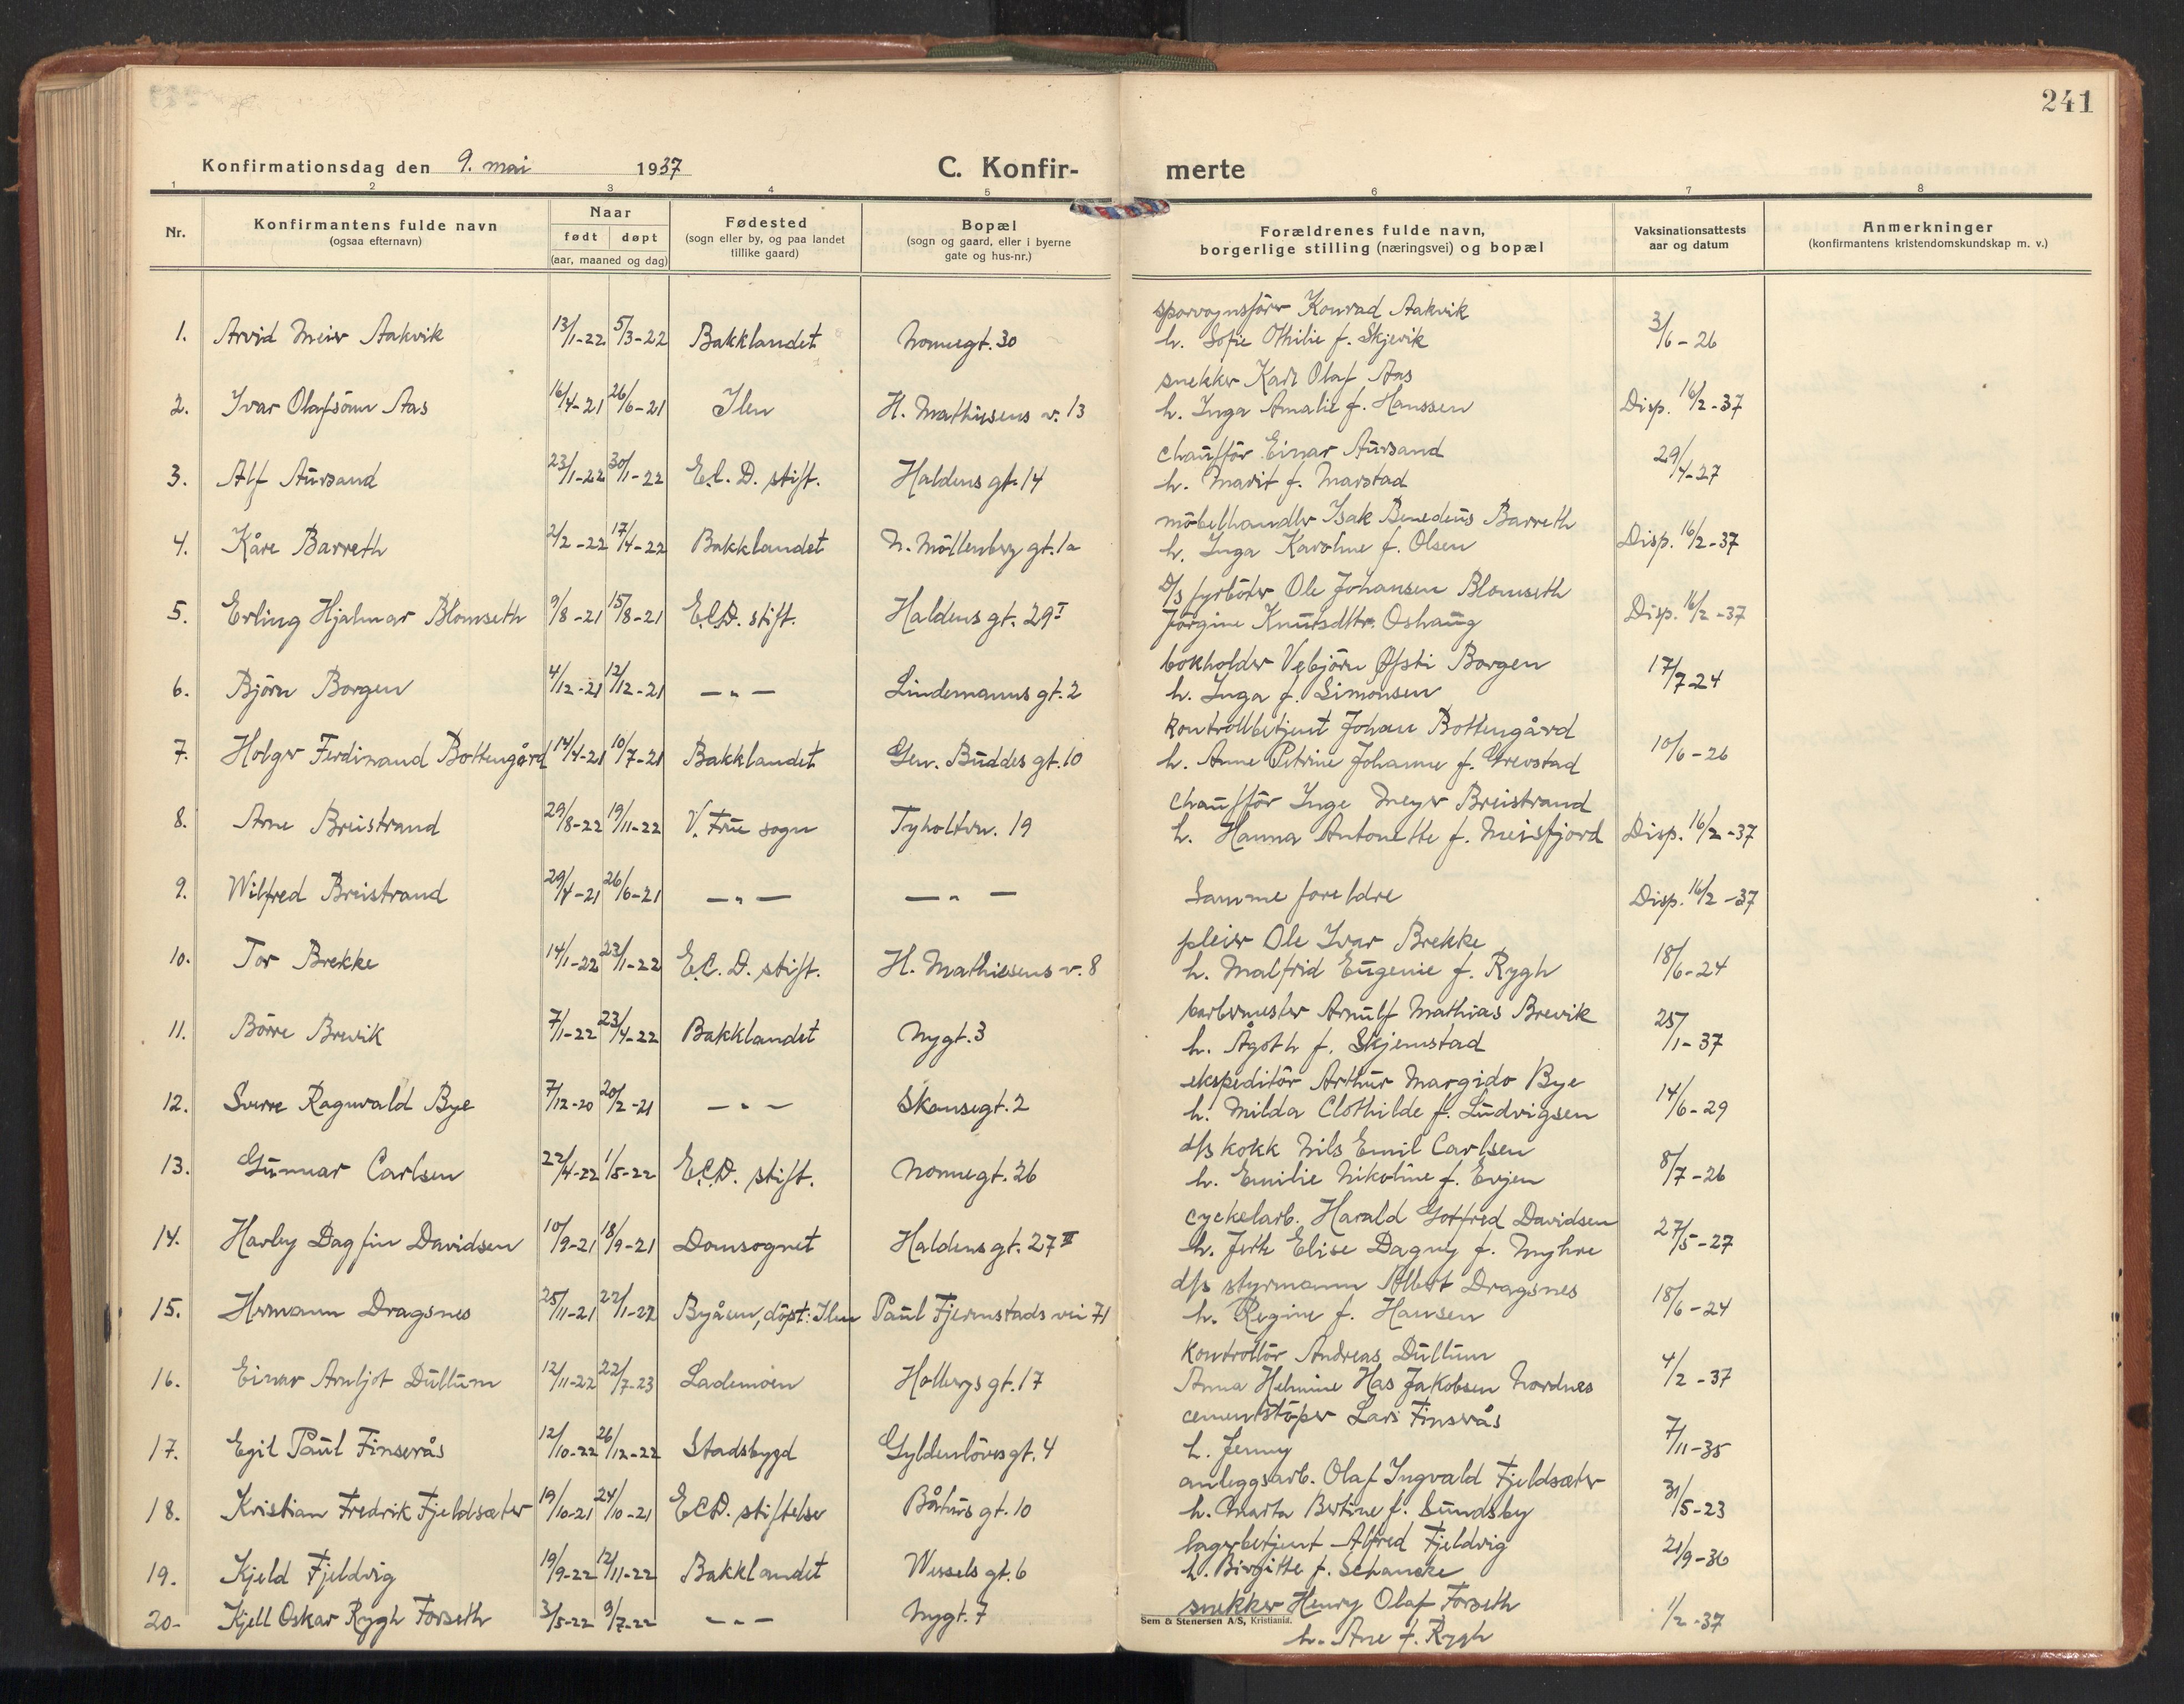 241
Konfirmationsdag den 9. mai 1937 C. Konfir- merte
1 2 3 4 5 6 7 8
Nr. Konfirmantens fulde navn (ogsaa efternavn) Naar født døpt (aar, maaned og dag) Fødested (sogn eller by, og paa landet tillike gaard) Bopæl (sogn og gaard, eller i byerne gate og hus-nr.) Forældrenes fulde navn, borgerlige stilling (næringsvei) og bopæl Vaksinationsattests aar og datum Anmerkninger (konfirmantens kristendomskundskap m. v.)
sporvognsförer Konrad Aakvik
1. Arvid Meier Aakvik 13/1-22 5/3-22 Bakklandet Nonnegt. 30 h. Sofie Othilie f. Skjevik 3/6-26
snekker Karl Olaf Aas
2. Ivar Olafsönn Aas 16/4-21 26/6-21 Ilen H. Mathiesens v. 13 h. Inga Amalie f. Hanssen Disp. 16/2-37
chaufför Einar Aursand
3. Alf Aursand 23/1-22 30/1-22 E.C.D. stift. Haldens gt. 14 h. Marit f. Marstad 29/4-27
möbelhandler Isak Benedeus Barreth
4. Kåre Barreth 2/2-22 17/4-22 Bakklandet N. Möllenberg gt. 1a h. Inga Karoline f. Olsen Disp. 16/2-37
D/s fyrböter Ole Johansen Blomseth
5. Erling Hjalmar Blomseth 9/8-21 15/8-21 E.C.D. stift. Haldens gt. 29 I Jörgine Knutsdttr. Oshaug Disp. 16/2-37
bokholder Vebjörn Øfsti Borgen
6. Björn Borgen 4/12-21 12/12-21 — " — Lindemanns gt. 2 h. Inga f. Simonsen 17/7 24
kontrollbetjent Johan Bottengård
7. Holger Ferdinand Bottengård 14/4-21 10/7-21 Bakklandet Gen. Buddes gt. 10 h. Anne Petrine Johanne f. Grevstad 10/6-26
chaufför Inge Meyer Breistrand
8. Arne Breistrand 29/8-22 19/11-22 V. Frue sogn Tyholtvn. 19 h. Hanna Antonette f. Meisfjord Disp. 16/2-37
9. Wilfred Breistrand 29/4-21 26/6-21 — " — — " — Samme foreldre Disp. 16/2-37
pleier Ole Ivar Brekke
10. Tor Brekke 14/1-22 22/1-22 E.C.D. stift. H. Mathiesens v. 8 h. Malfrid Eugenie f. Rygh 18/6-24
barbermester Arnulf Mathias Brevik
11. Börre Brevik 7/1-22 23/4-22 Bakklandet Nygt. 3 h. Ågoth f. Skjemstad 25/1-37
ekspeditör Arthur Margido Bye
12. Sverre Ragnvald Bye 7/12-20 20/2-21 — " — Skansegt. 2 h. Milda Clothilde f. Ludvigsen 14/6-29
d/s kokk Nils Emil Carlsen
13. Gunnar Carlsen 22/4-22 1/5-22 E.C.D. stift. Nonnegt. 26 h. Emilie Nikoline f. Evjen 8/7-26
cyckelarb. Harald Gotfred Davidsen
14. Harby Dagfin Davidsen 10/9-21 18/9-21 Domsognet Haldens gt. 27 II h. Elise Dagny f. Myhre 27/5-27
d/s styrmann Albert Dragsnes
15. Hermann Dragsnes 25/11-21 22/1-22 Byåsen, döpt: Ilen Paul Fjermstads vei 71 h. Regine f. Hansen 18/6-24
Kontrollör Andreas Dullum
16. Einar Arnljot Dullum 12/11-22 22/7-23 Lademoen Holbergs gt. 17 Anna Helmine Has Jakobsen Nordnes 4/2-37
cementstöper Lars Finserås
17. Egil Paul Finserås 12/10-22 26/12-22 Stadsbygd Gyldenlöves gt. 4 h. Jenny 7/11-35
anleggsarb. Olaf Ingvald Fjeldsæter
18. Kristian Fredrik Fjeldsæter 19/10-21 24/10-21 E.C.D. stiftelse Båhus gt. 10 h. Marta Bertine f. Sundsby 31/5-23
lagerbetjent Alfred Fjeldvig
19. Kjeld Fjeldvig 19/9-22 12/11-22 Bakklandet Wessels gt. 6 h. Birgitte f. Schancke 21/9-36
snekker Henry Olaf Forseth
20. Kjell Oskar Rygh Forseth 3/5-22 9/7-22 — " — Nygt. 7 1/2-37
Sem & Stenersen A/S, Kristiania.
h. Ane f. Rygh